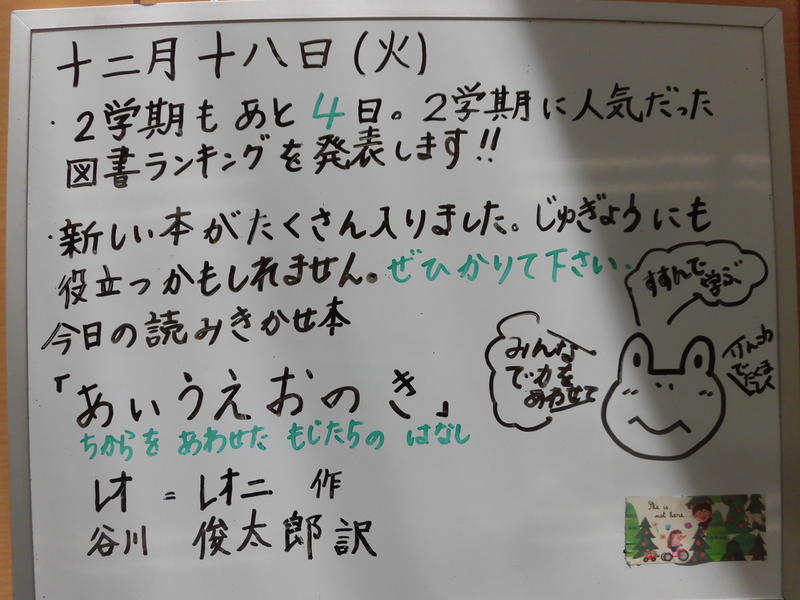 十二月十八日(火)
・2学期もあと4日。2学期に人気だった
図書ランキングを発表します!!
・新しい本がたくさん入りました。じゅぎょうにも
役立つかもしれません。ぜひかりて下さい。
今日の読みきかせ本
「あいうえおのき」
ちからをあわせたもじたちのはなし
レオ=レオニ 作
谷川 俊太郎 訳
すすんで
学ぶ
みんな
で力を
あわせて
She is
not here.